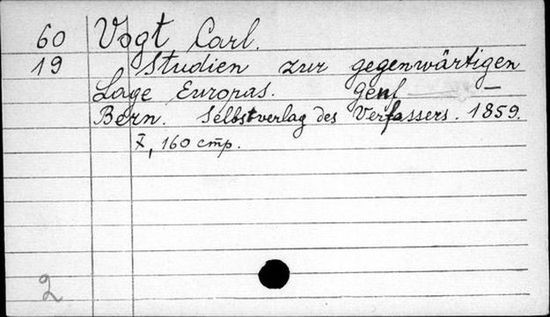 60 Vogt Carl.
19 Studien zur gegenwärtigen
Lage Europas. Genf —
Bern. Selbstverlag des Verfassers. 1859.
X, 160 стр.
2